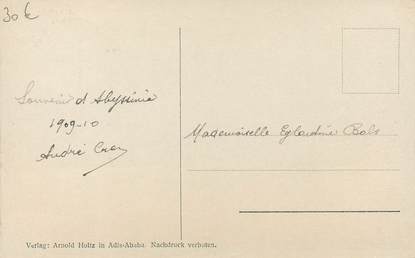 30€
Souvenir d'Abyssinie
1909-10
André
Mademoiselle Eglantine Bals
Verlag: Arnold Holtz in Adis-Ababa. Nachdruck verboten.